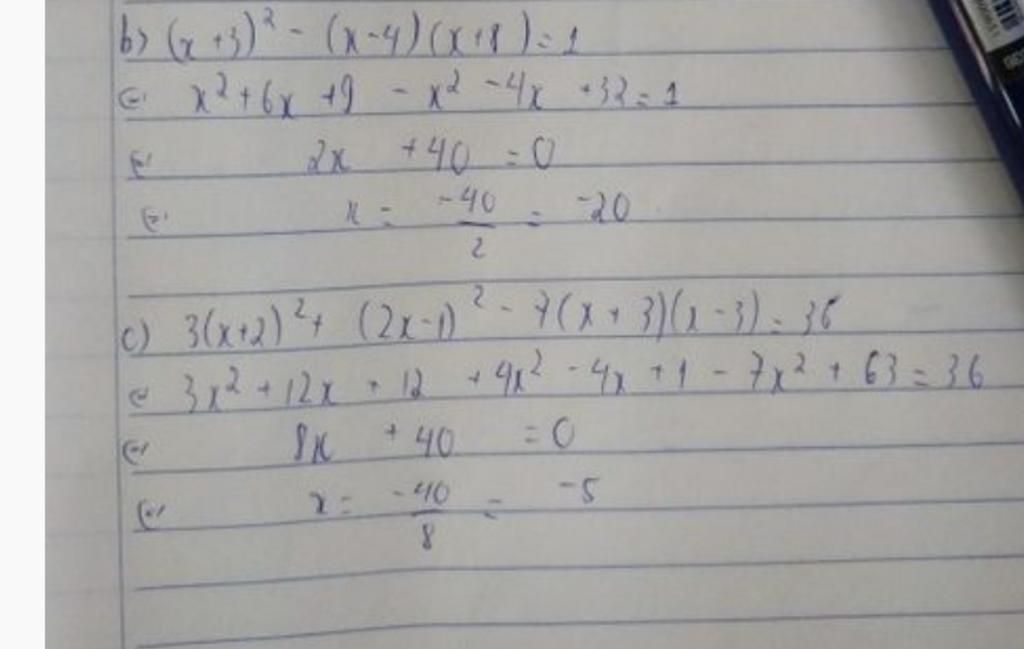 b) (x+3)² - (x-4)(x+8) = 1
⇔ x² + 6x + 9 - x² - 4x + 32 = 1
⇔ 2x + 40 = 0
⇔ x = -40/2 = -20
c) 3(x+2)² + (2x-1)² - 7(x+3)(x-3) = 36
⇔ 3x² + 12x + 12 + 4x² - 4x + 1 - 7x² + 63 = 36
⇔ 8x + 40 = 0
⇔ x = -40/8 = -5